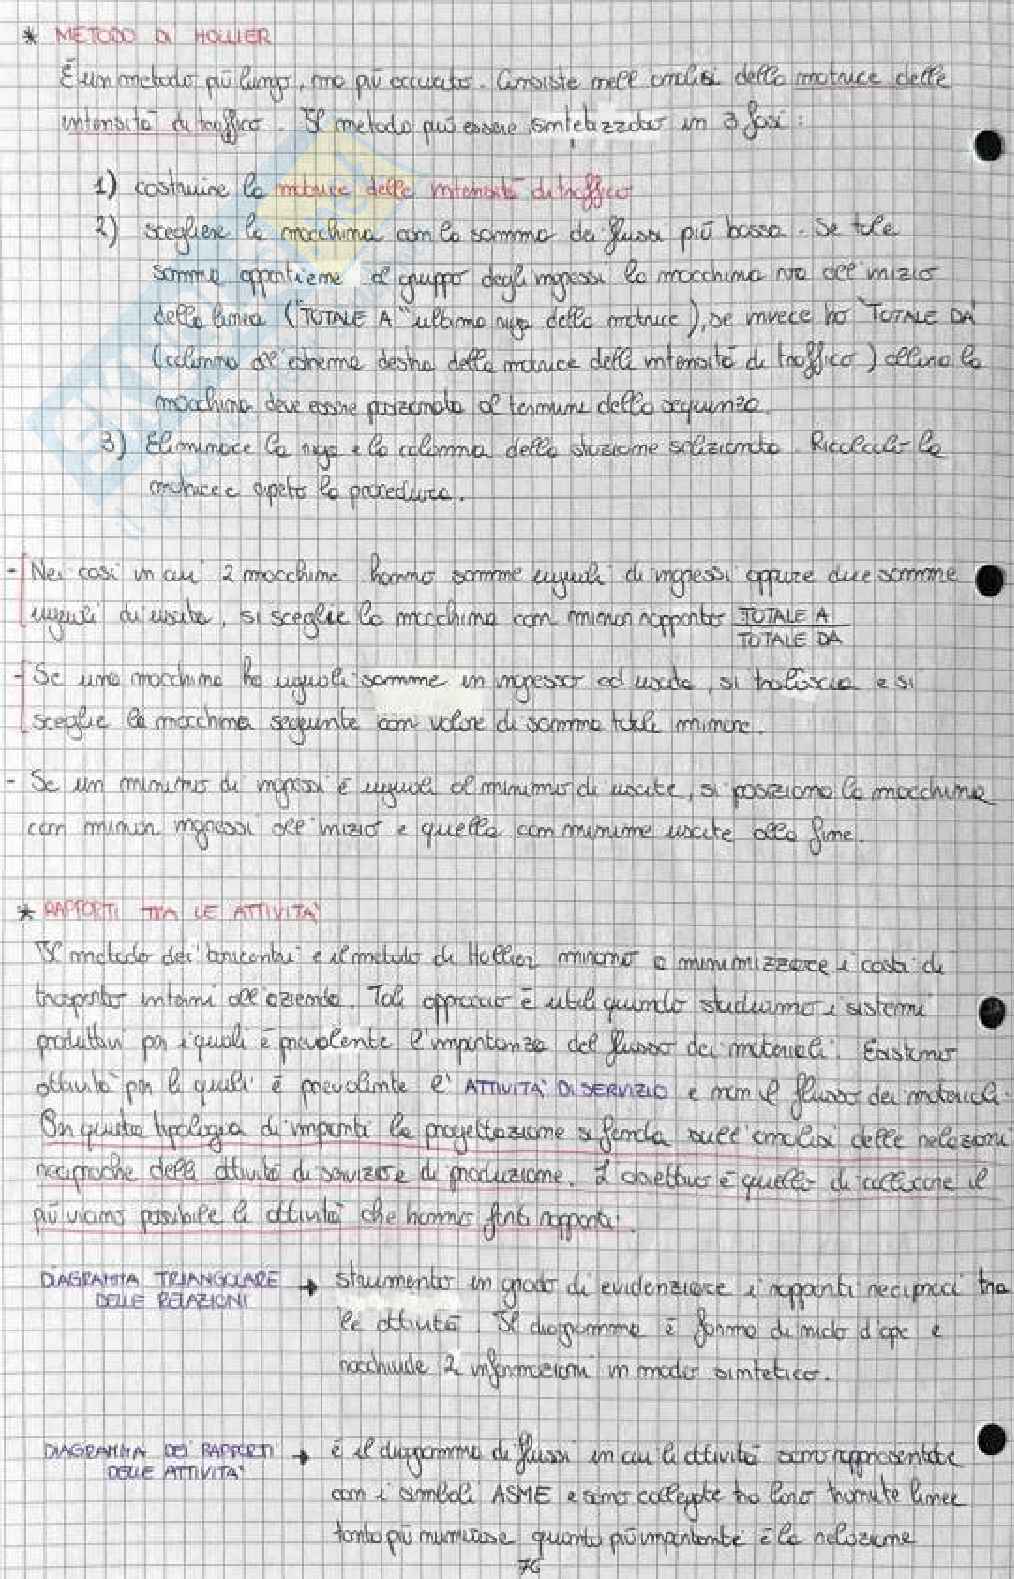 * METODO DI HOLLIER
È un metodo più lungo, ma più accurato. Consiste nell'analisi della matrice delle
intensità di traffico. Il metodo può essere sintetizzato in 3 fasi:
1) costruire la matrice delle intensità di traffico
2) scegliere la macchina con la somma dei flussi più bassa. Se tale
somma appartiene al gruppo degli ingressi la macchina va all'inizio
della linea ("TOTALE A" ultima riga della matrice), se invece ho "TOTALE DA"
(colonna all'estrema destra della matrice delle intensità di traffico) allora la
macchina deve essere posizionata al termine della sequenza.
3) Eliminare la riga e la colonna della stazione selezionata. Ricalcolo la
matrice e ripeto la procedura.
- Nei casi in cui 2 macchine hanno somme uguali di ingressi oppure due somme
uguali di uscite, si sceglie la macchina con minor rapporto TOTALE A
TOTALE DA
- Se una macchina ha uguali somme in ingresso ed uscita, si tralascia e si
sceglie la macchina seguente con valore di somma totale minore.
- Se un minimo di ingressi è uguale al minimo di uscite, si posiziona la macchina
con minori ingressi all'inizio e quella con minime uscite alla fine.
* RAPPORTI TRA LE ATTIVITÀ
Il metodo dei baricentri e il metodo di Hollier mirano a minimizzare i costi di
trasporto interni all'azienda. Tale approccio è utile quando studiamo i sistemi
produttivi per i quali è prevalente l'importanza del flusso dei materiali. Esistono
attività per le quali è prevalente l'ATTIVITÀ DI SERVIZIO e non il flusso dei materiali.
In questa tipologia di impianti la progettazione si fonda sull'analisi delle relazioni
reciproche delle attività di servizio e di produzione. L'obiettivo è quello di collocare il
più vicino possibile le attività che hanno forti rapporti.
DIAGRAMMA TRIANGOLARE → strumento in grado di evidenziare i rapporti reciproci tra
DELLE RELAZIONI
le attività. Il diagramma è forma di nido d'ape e
racchiude 2 informazioni in modo sintetico.
DIAGRAMMA DEI RAPPORTI → è il diagramma di flussi in cui le attività sono rappresentate
DELLE ATTIVITÀ
con i simboli ASME e sono collegate tra loro tramite linee
tanto più numerose quanto più importante è la relazione
76